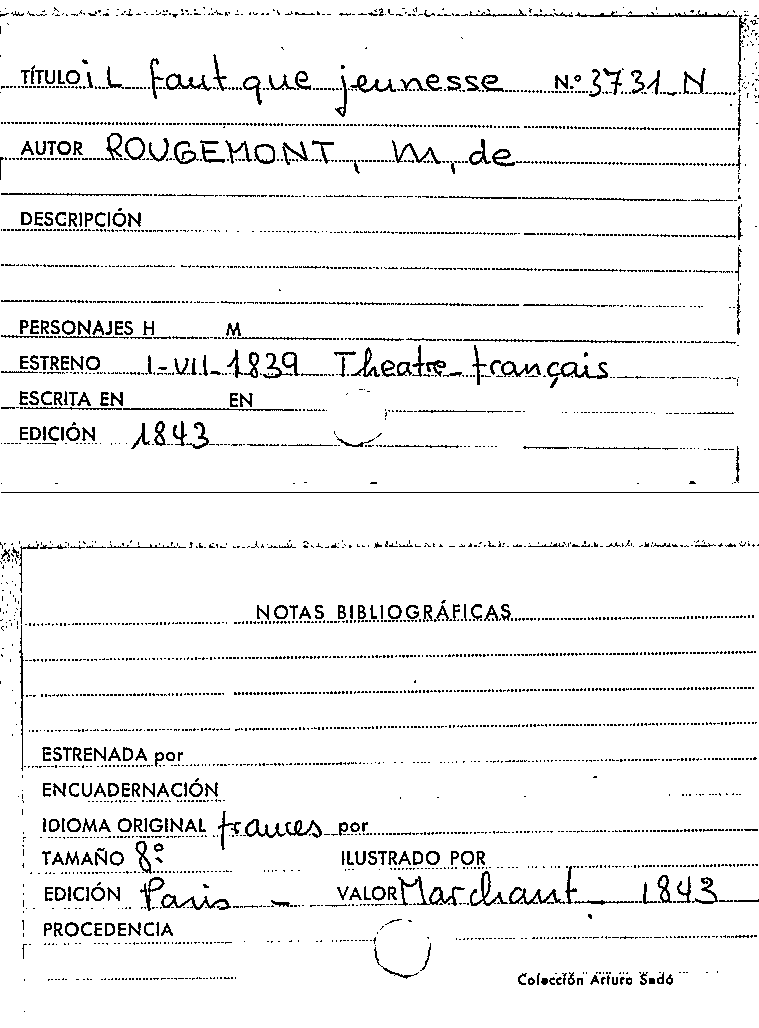 TÍTULO iL faut que jeunesse N.º 3731-N
AUTOR ROUGEMONT, M, de
DESCRIPCIÓN
PERSONAJES H M
ESTRENO 1-VII-1839 Theatre-français
ESCRITA EN EN
EDICIÓN 1843
NOTAS BIBLIOGRÁFICAS
ESTRENADA por
ENCUADERNACIÓN
IDIOMA ORIGINAL frances por
TAMAÑO 8º ILUSTRADO POR
EDICIÓN Paris - VALOR Marchant - 1843
PROCEDENCIA
Colección Arturo Sedó